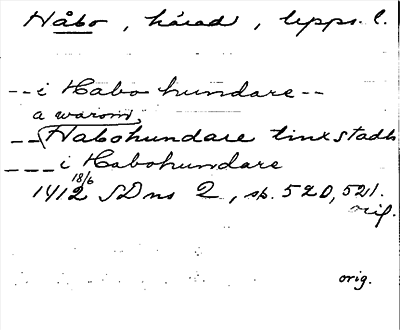 Håbo, härad, Upps. l.
-- i Habo hundare --
a warom,
-- Habohundare tinxstadh
--- i Habohundare
1412 18/6 SDns 2, sp. 520, 521.
orig.
orig.